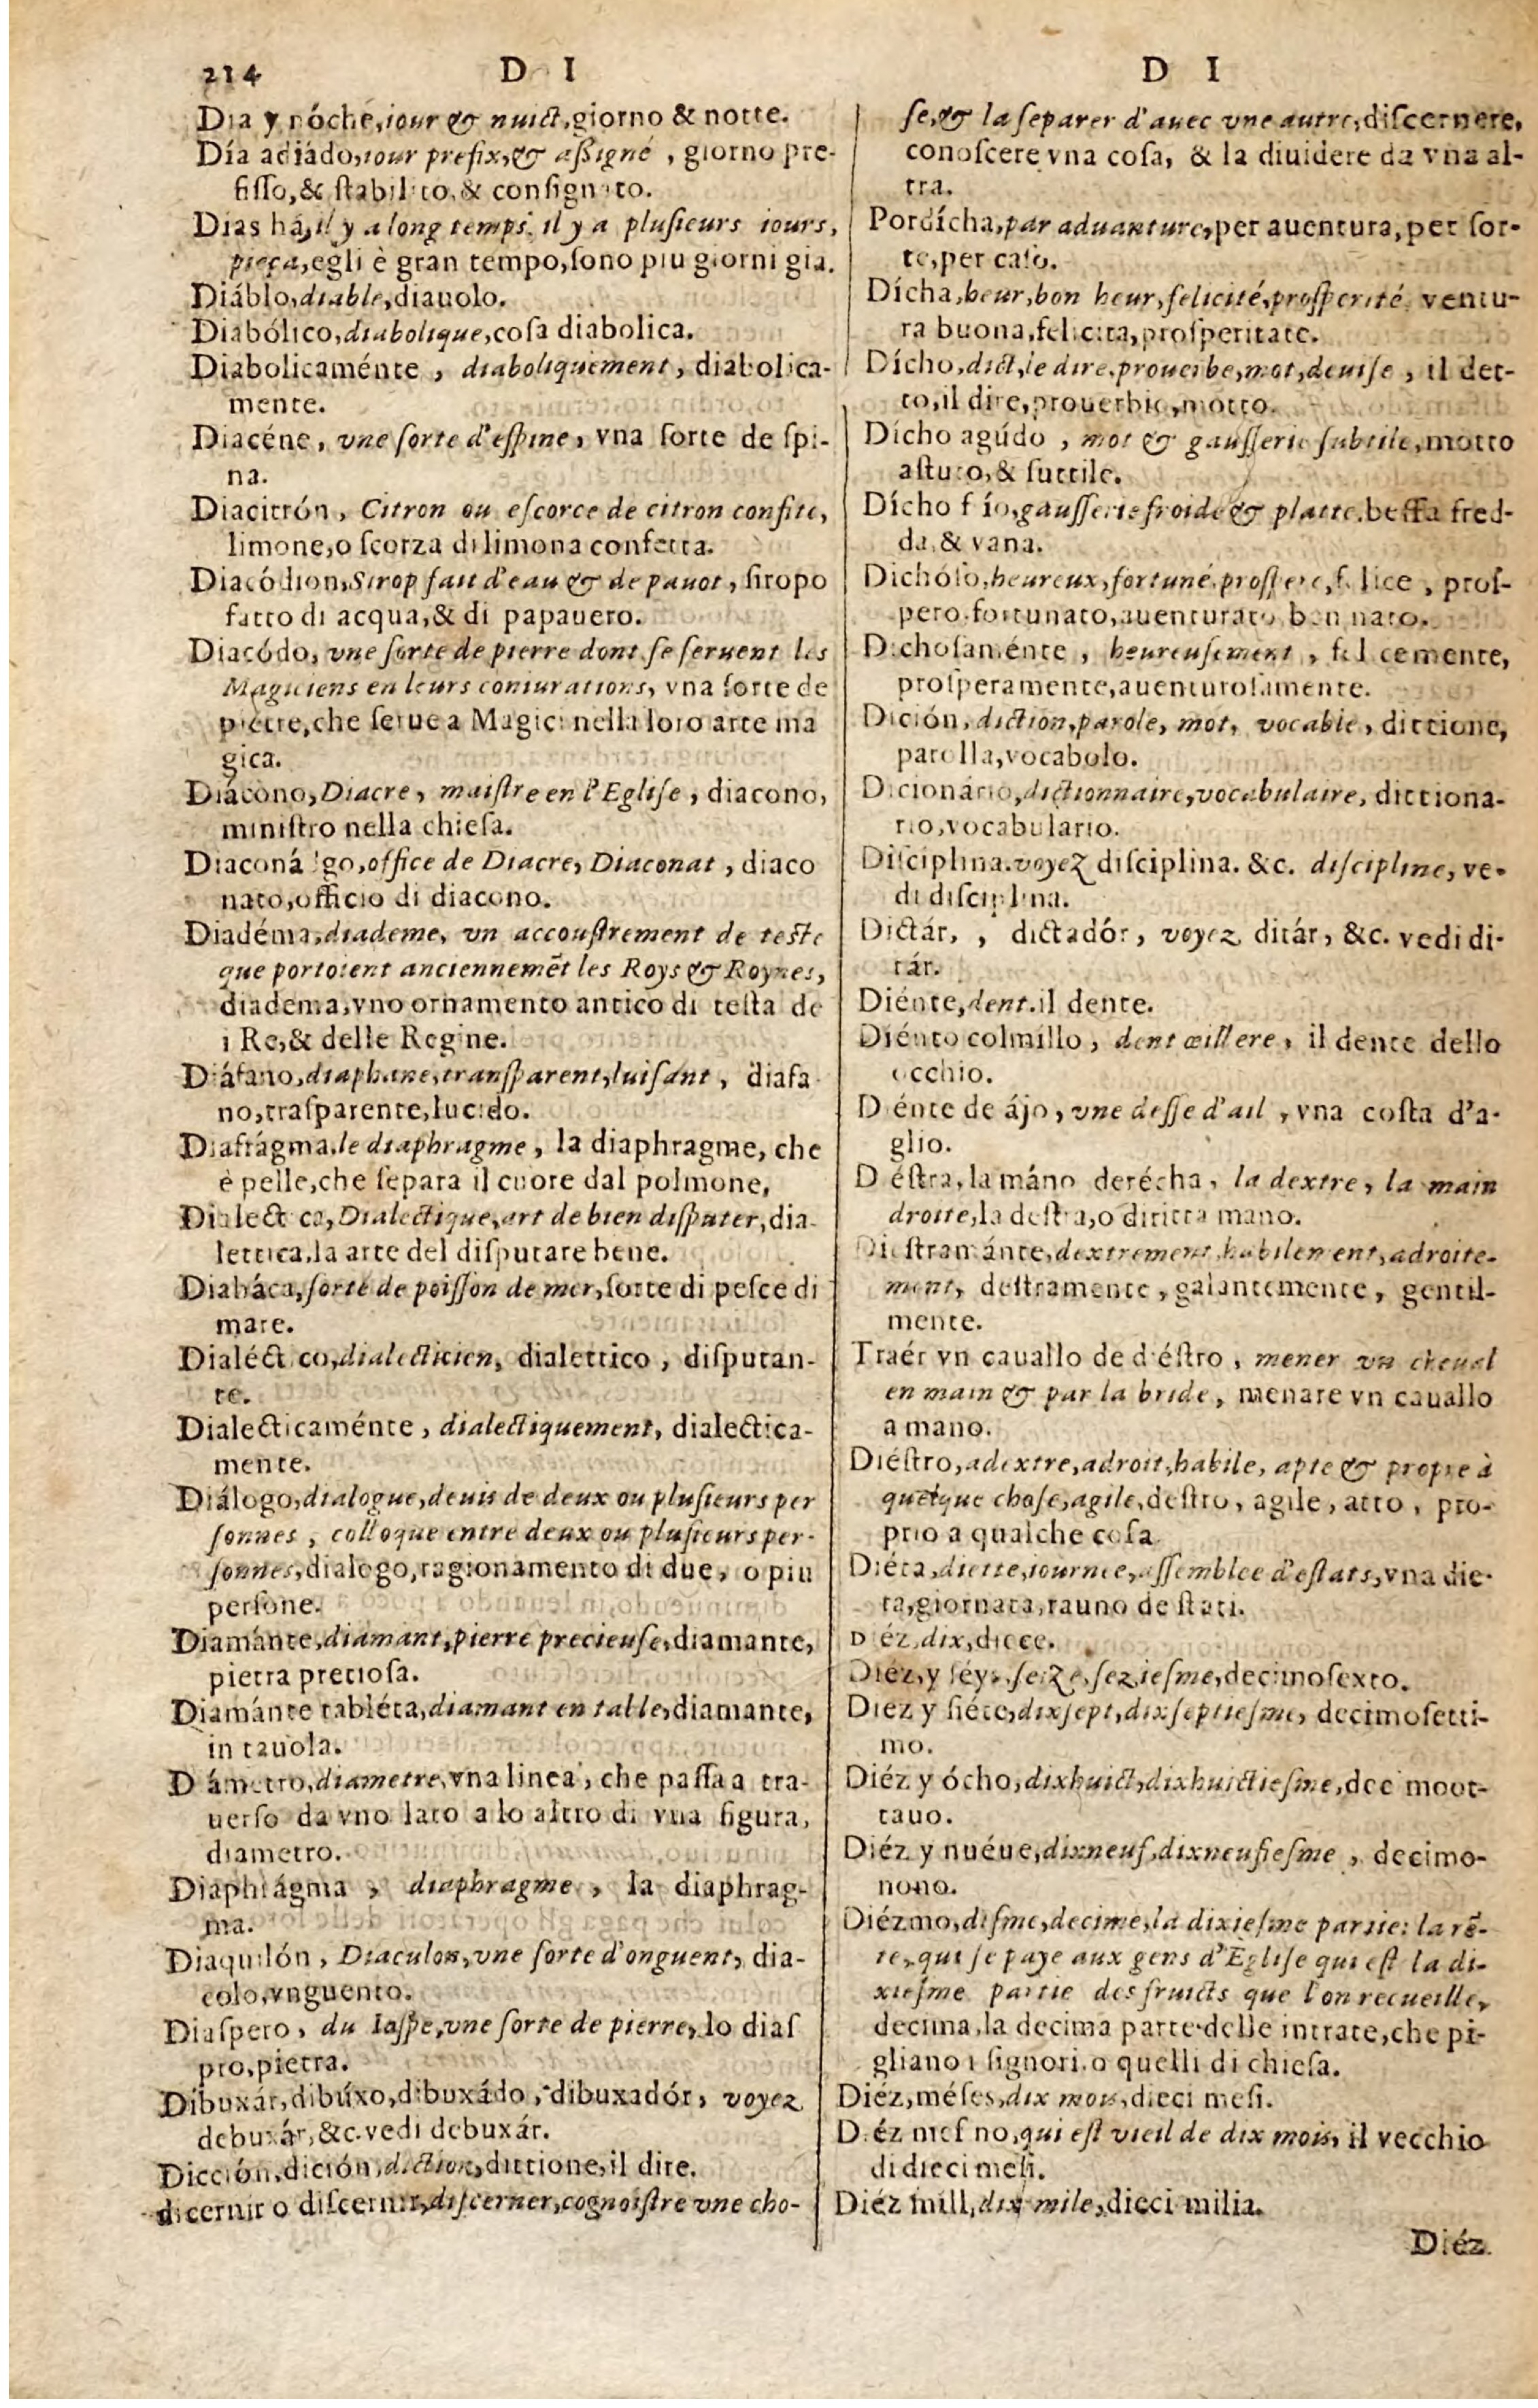 214 D I D I
Dia y nóche, iour & nuict, giorno & notte.
Día adiádo, iour prefix, & aßigné, giorno pre-
fisso, & ſtabilito, & conſignato.
Dias há, il y a long temps, il y a pluſieurs iours,
pieça, egli è gran tempo, ſono piu giorni gia.
Diáblo, diable, diauolo.
Diabólico, diabolique, coſa diabolica.
Diabolicaménte, diaboliquement, diabolica-
mente.
Diacéne, vne ſorte d'eſpine, vna ſorte de ſpi-
na.
Diacitrón, Citron ou eſcorce de citron confite,
limone, o ſcorza di limona confetta.
Diacódion, Sirop fait d'eau & de pauot, ſiropo
fatto di acqua, & di papauero.
Diacódo, vne ſorte de pierre dont ſe ſeruent les
Magiciens en leurs coniurations, vna ſorte de
pietre, che ſerue a Magici nella loro arte ma
gica.
Diácono, Diacre, maiſtre en l'Egliſe, diacono,
miniſtro nella chieſa.
Diaconálgo, office de Diacre, Diaconat, diaco
nato, officio di diacono.
Diadéma, diademe, vn accouſtrement de teſte
que portoient anciennemẽt les Roys & Roynes,
diadema, vno ornamento antico di teſta de
i Re, & delle Regine.
Diáfano, diaphane, tranſparent, luiſant, diafa
no, traſparente, lucido.
Diafrágma, le diaphragme, la diaphragme, che
è pelle, che ſepara il cuore dal polmone,
Dialectica, Dialectique, art de bien diſputer, dia-
lettica, la arte del diſputare bene.
Diabáca, ſorte de poiſſon de mer, ſorte di peſce di
mare.
Dialéctico, dialecticien, dialettico, diſputan-
te.
Dialecticaménte, dialectiquement, dialectica-
mente.
Diálogo, dialogue, deuis de deux ou pluſieurs per
ſonnes, colloque entre deux ou pluſieurs per-
ſonnes, dialogo, ragionamento di due, o piu
perſone.
Diamánte, diamant, pierre precieuſe, diamante,
pietra pretioſa.
Diamánte tabléta, diamant en table, diamante,
in tauola.
Diámetro, diametre, vna linea, che paſſa a tra-
uerſo da vno lato a lo altro di vna figura,
diametro.
Diaphrágma, diaphragme, la diaphrag-
ma.
Diaquilón, Diaculon, vne ſorte d'onguent, dia-
colo, vnguento.
Diaſpero, du Iaſpe, vne ſorte de pierre, lo diaſ
pro, pietra.
Dibuxár, dibúxo, dibuxádo, dibuxadór, voyez
debuxár, &c. vedi debuxár.
Dicción, dición, diction, dittione, il dire.
dicernir o diſcernir, diſcerner, cognoiſtre vne cho-
ſe, & la ſeparer d'auec vne autre, diſcernere,
conoſcere vna coſa, & la diuidere da vna al-
tra.
Pordícha, par aduanture, per auentura, per ſor-
te, per caſo.
Dícha, heur, bon heur, felicité, proſperité, ventu-
ra buona, felicita, proſperitate.
Dícho, dict, le dire, prouerbe, mot, deuiſe, il det-
to, il dire, prouerbio, motto.
Dícho agúdo, mot & gauſſerie ſubtile, motto
aſtuto, & ſuttile.
Dícho frío, gauſſerie froide & platte, beffa fred-
da, & vana.
Dichóſo, heureux, fortuné, proſpere, felice, proſ-
pero, fortunato, auenturato, ben nato.
Dichoſaménte, heureuſement, felicemente,
proſperamente, auenturoſamente.
Dición, diction, parole, mot, vocable, dittione,
parolla, vocabolo.
Dicionário, dictionnaire, vocabulaire, dittiona-
rio, vocabulario.
Diſciplina. voyez diſciplina. &c. diſcipline, ve-
di diſciplina.
Dictár, , dictadór, voyez ditár, &c. vedi di-
tár.
Diénte, dent. il dente.
Diénto colmíllo, dent œillere, il dente dello
occhio.
Diénte de ájo, vne deſſe d'ail, vna coſta d'a-
glio.
Diéſtra, la máno derécha, la dextre, la main
droite, la deſtra, o diritta mano.
Dieſtramánte, dextrement, habilement, adroite-
ment, deſtramente, galantemente, gentil-
mente.
Traér vn cauallo de diéſtro, mener vn cheual
en main & par la bride, menare vn cauallo
a mano.
Diéſtro, adextre, adroit, habile, apte & propre à
quelque choſe, agile, deſtro, agile, atto, pro-
prio a qualche coſa.
Diéta, diette, iournee, aſſemblee d'eſtats, vna die-
ta, giornata, rauno de ſtati.
Diéz, dix, diece.
Diéz, y ſéys, ſeize, ſezieſme, decimoſexto.
Diez y ſiéte, dixſept, dixſeptieſme, decimoſetti-
mo.
Diéz y ócho, dixhuict, dixhuictieſme, decimoot-
tauo.
Diéz y nuéue, dixneuf, dixneufieſme, decimo-
nono.
Diézmo, diſme, decime, la dixieſme partie: la rẽ-
te, qui ſe paye aux gens d'Egliſe qui eſt la di-
xieſme partie des fruicts que l'on recueille,
decima, la decima parte delle intrate, che pi-
gliano i ſignori, o quelli di chieſa.
Diéz, méſes, dix mois, dieci meſi.
Diéz meſino, qui eſt vieil de dix mois, il vecchio
di dieci meſi.
Diéz mill, dix mile, dieci milia.
Diéz